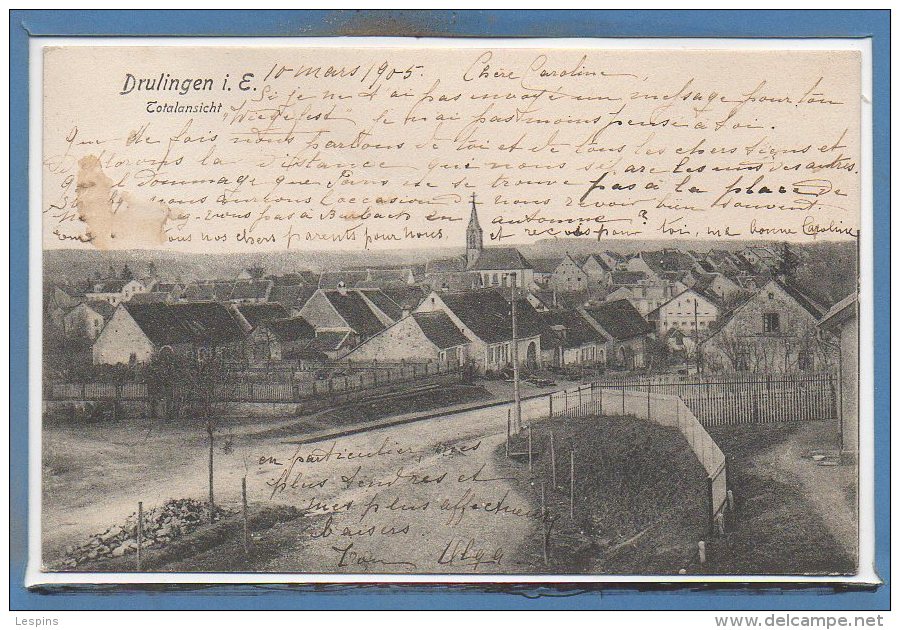 Drulingen i. E.
Totalansicht
10 mars 1905. Chère Caroline
Si je ne t'ai pas envoyé un message pour ton
je n'ai pas moins pensé à toi.
Que de fois nous parlons de toi et de tous les chers tiens et
déplorons la distance qui nous sépare les uns des autres.
dommage que Paris ne se trouve pas à la place de
nous aurions l'occasion de nous revoir bien souvent.
vous pas à Burbach en automne?
vous nos chers parents pour nous. et reçois pour toi, ma bonne Caroline
en particulier, mes
plus tendres et
mes plus affectueux
baisers
Ton Olga
Lespins
www.delcampe.net